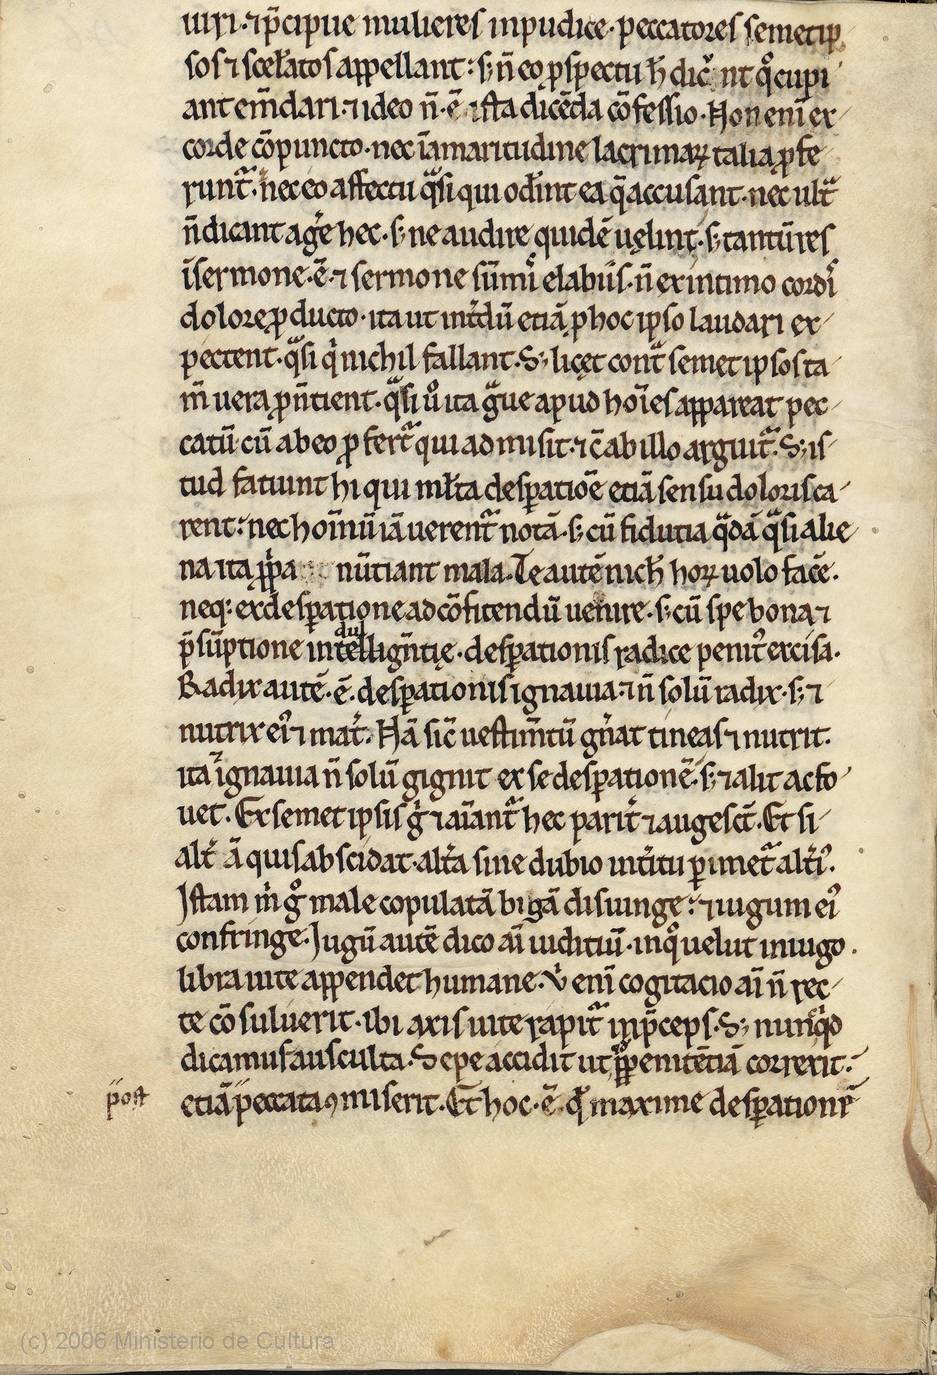 uiri·⁊ p̄cipue mulieres inpudice·peccatores semetip
sos ⁊ scel̄atos appellant: s; n̄ eo ꝓspectu h̄ dic̄ nt qͦ cupi
ant em̄dari·⁊ ideo n̄·ē ista dicēda cōfessio·Non enī ex
corde cōpuncto·nec ī amaritudine lacrimaꝝ talia ꝓfe
runt᷑·nec eo affectu qͣsi qui odīnt ea q̄ accusant·nec ult͛
n̄ dicant ag̾e hec·s; ne audire quidē uęlint·s; tantū res
ī sermone·ē·⁊ sermone sūmi elabiis·n̄ ex intimo cordı᷒
dolore ꝓducto·ita ut int̾dū etiā p hoc ipso laudari ex
pectent·qͣsi qͥ nichil fallant·S; licet cont͛ semetipsos ta
m̄ uera ꝓn̄tient·qͣsi uͦ ita gͣue apud hoīes appareat pec
catū cū ab eo ꝓfert᷑ qui admisit·⁊ c̄ ab illo arguit᷑·S; is
tud fatiunt hi qui ml̄ta desꝑatiōe etiā sensu doloris ca
rent: nec homīnū iā uerent᷑ notā·s; cū fidutia qͣdā qͣsi alie
na ita ꝓp̄a nūtiant mala·Te autē nich̄ hoꝝ uolo facē·
neq: ex desꝑatione ad cōfitendū uenire·s; cū spe bona ⁊
p̄sūptione intellign̄tię·desꝑationis radice penit᷒ excisa·
Radix autē·ē·desꝑationis ignauia ⁊ n̄ solū radix·s; ⁊
nutrix ei᷒ ⁊ mat̾·Nā sic̄ uestim̄tū gn̾at tineas ⁊ nutrit·
ita ⁊ ignauia n̄ solū gignit ex se desꝑationē·s; ⁊ alit ac fo
uet·Ex semetipsis gͥ ⁊ aīant᷑ hec parit̾ ⁊ augesc̄t·Et si
alt̾ ā quis abscidat·alt̾a sine dubio int̾itu ꝑimet᷑ alt̾i᷒·
Istam m̄ gͦ male copulatā bigā disiunge: ⁊ iugum ei᷒
confringe·Jugū autē dico aīi iuditiū·in qͦ uelut in iugo·
libra uite appendet humane·Vͥ enī cogitacio aīi n̄ rec
te cōsuluerit·ibi axis uite rapit᷑ in p̄ceps·S; nunc qͦd
dicamus ausculta·Sepe accidit ut ꝓp̄ penitētiā correxit:
post
etiā peccata ꝯmiserit·Et hoc·ē·qͦd maxime desꝑationē